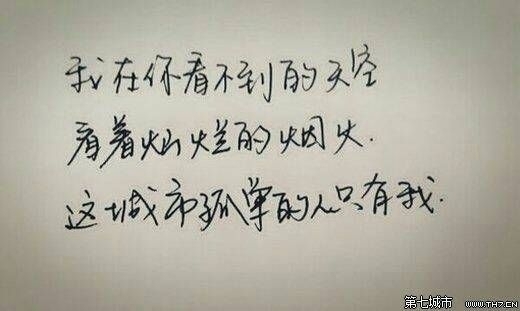 我在你看不到的天空
看着灿烂的烟火.
这城市孤单的人只有我.
第七城市 WWW.TH7.CN